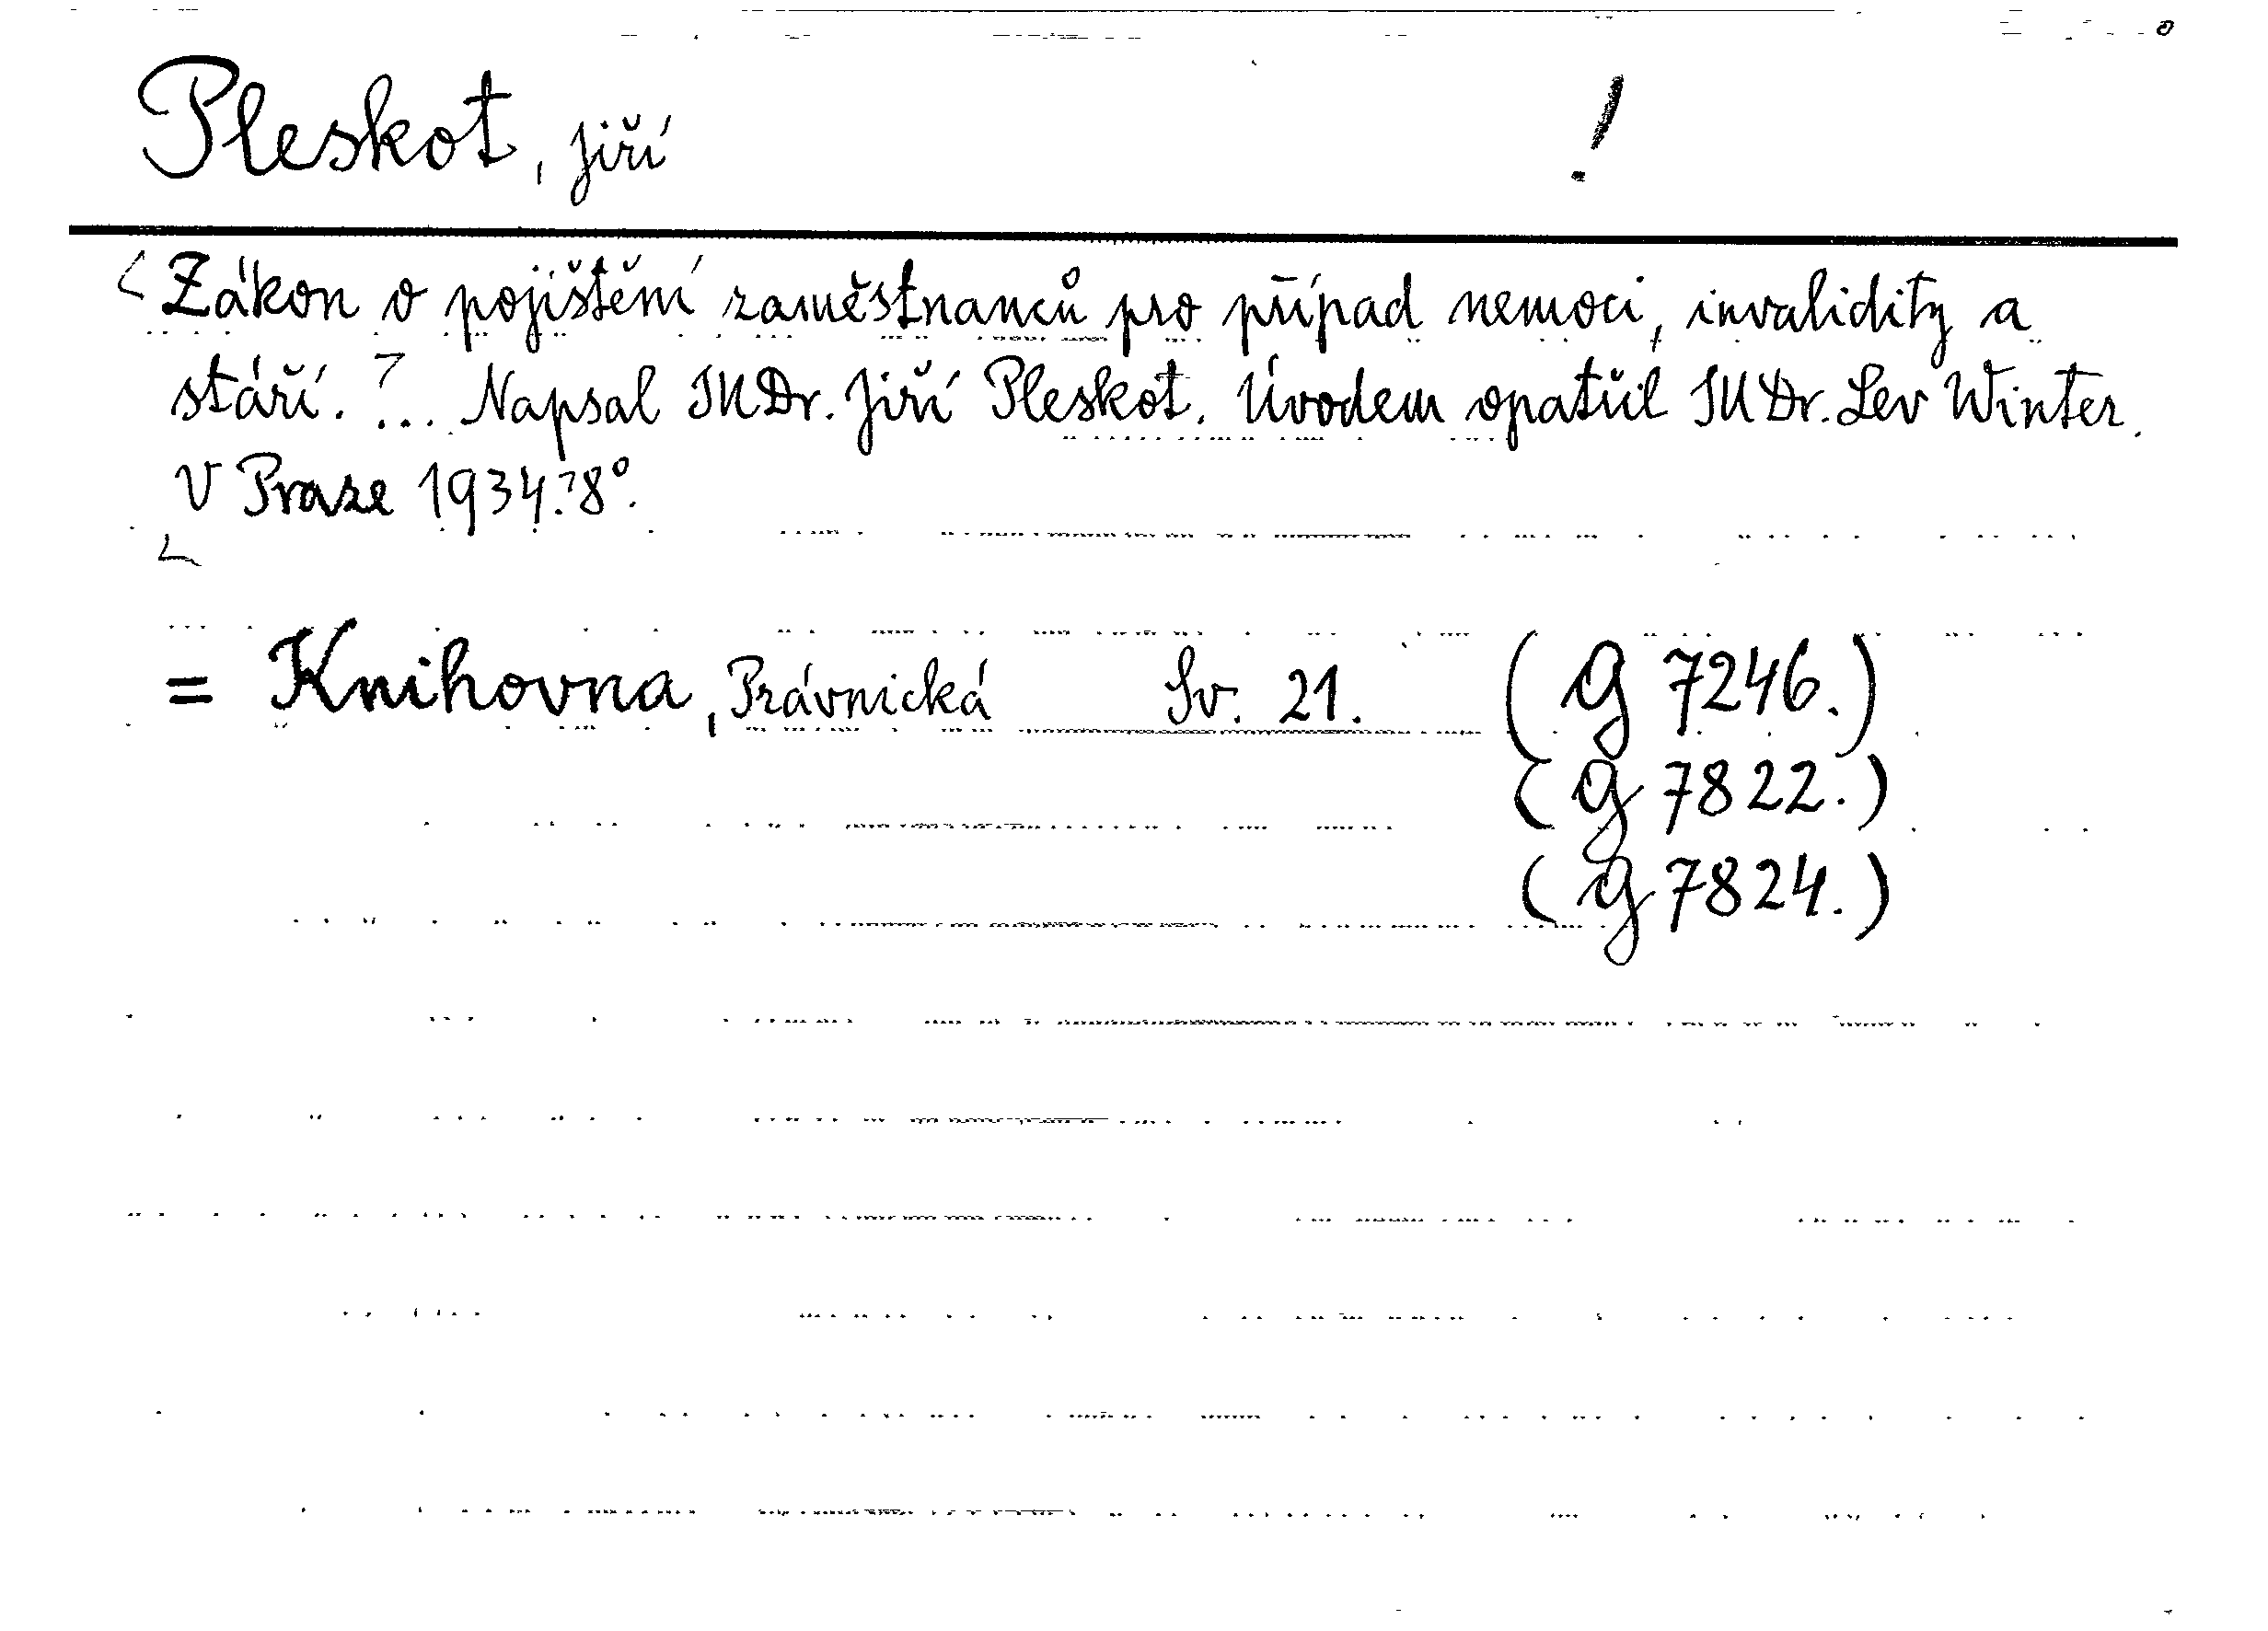 Pleskot, Jiří !
Zákon o pojištění zaměstnanců pro případ nemoci, invalidity a
stáří. ... Napsal JUDr. Jiří Pleskot. Úvodem opatřil JUDr. Lev Winter.
V Praze 1934. 8°.
= Knihovna, Právnická Sv. 21. (G 7246.)
(G 7822.)
(G 7824.)